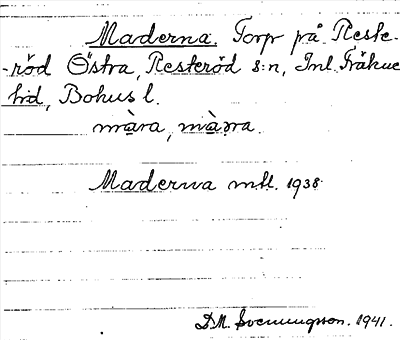 Maderna. Torp på Reste-
-röd Östra, Resteröd s:n, Inl. Fräkne
hd, Bohusl.
màra, màṇa.
Maderna mtl. 1938
D.M. Svenningsson. 1941.